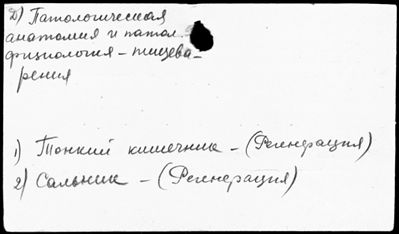 Д) Патологическая
анатомия и патол.
физиология – пищева-
рения
1) Тонкий кишечник – (Регенерация)
2) Сальник – (Регенерация)